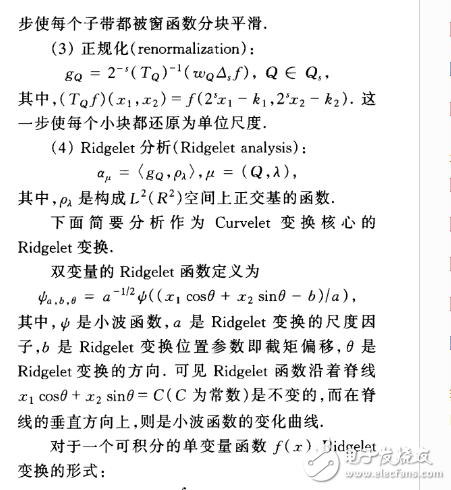 步使每个子带都被窗函数分块平滑.
(3) 正规化(renormalization):
g_Q = 2^{-s}(T_Q)^{-1}(w_QΔ_s f), Q ∈ Q_s,
其中,(T_Q f)(x_1,x_2) = f(2^s x_1 - k_1,2^s x_2 - k_2). 这
一步使每个小块都还原为单位尺度.
(4) Ridgelet 分析(Ridgelet analysis):
α_μ = ⟨g_Q,ρ_λ⟩,μ = (Q,λ),
其中,ρ_λ 是构成 L^2(R^2)空间上正交基的函数.
下面简要分析作为 Curvelet 变换核心的
Ridgelet 变换.
双变量的 Ridgelet 函数定义为
ψ_{a,b,θ} = a^{-1/2}ψ((x_1 cosθ + x_2 sinθ - b)/a),
其中,ψ 是小波函数,a 是 Ridgelet 变换的尺度因
子,b 是 Ridgelet 变换位置参数即截矩偏移,θ 是
Ridgelet 变换的方向. 可见 Ridgelet 函数沿着脊线
x_1 cosθ + x_2 sinθ = C(C 为常数)是不变的,而在脊
线的垂直方向上,则是小波函数的变化曲线.
对于一个可积分的单变量函数 f(x),Ridgelet
变换的形式:
电子发烧友
www.elecfans.com